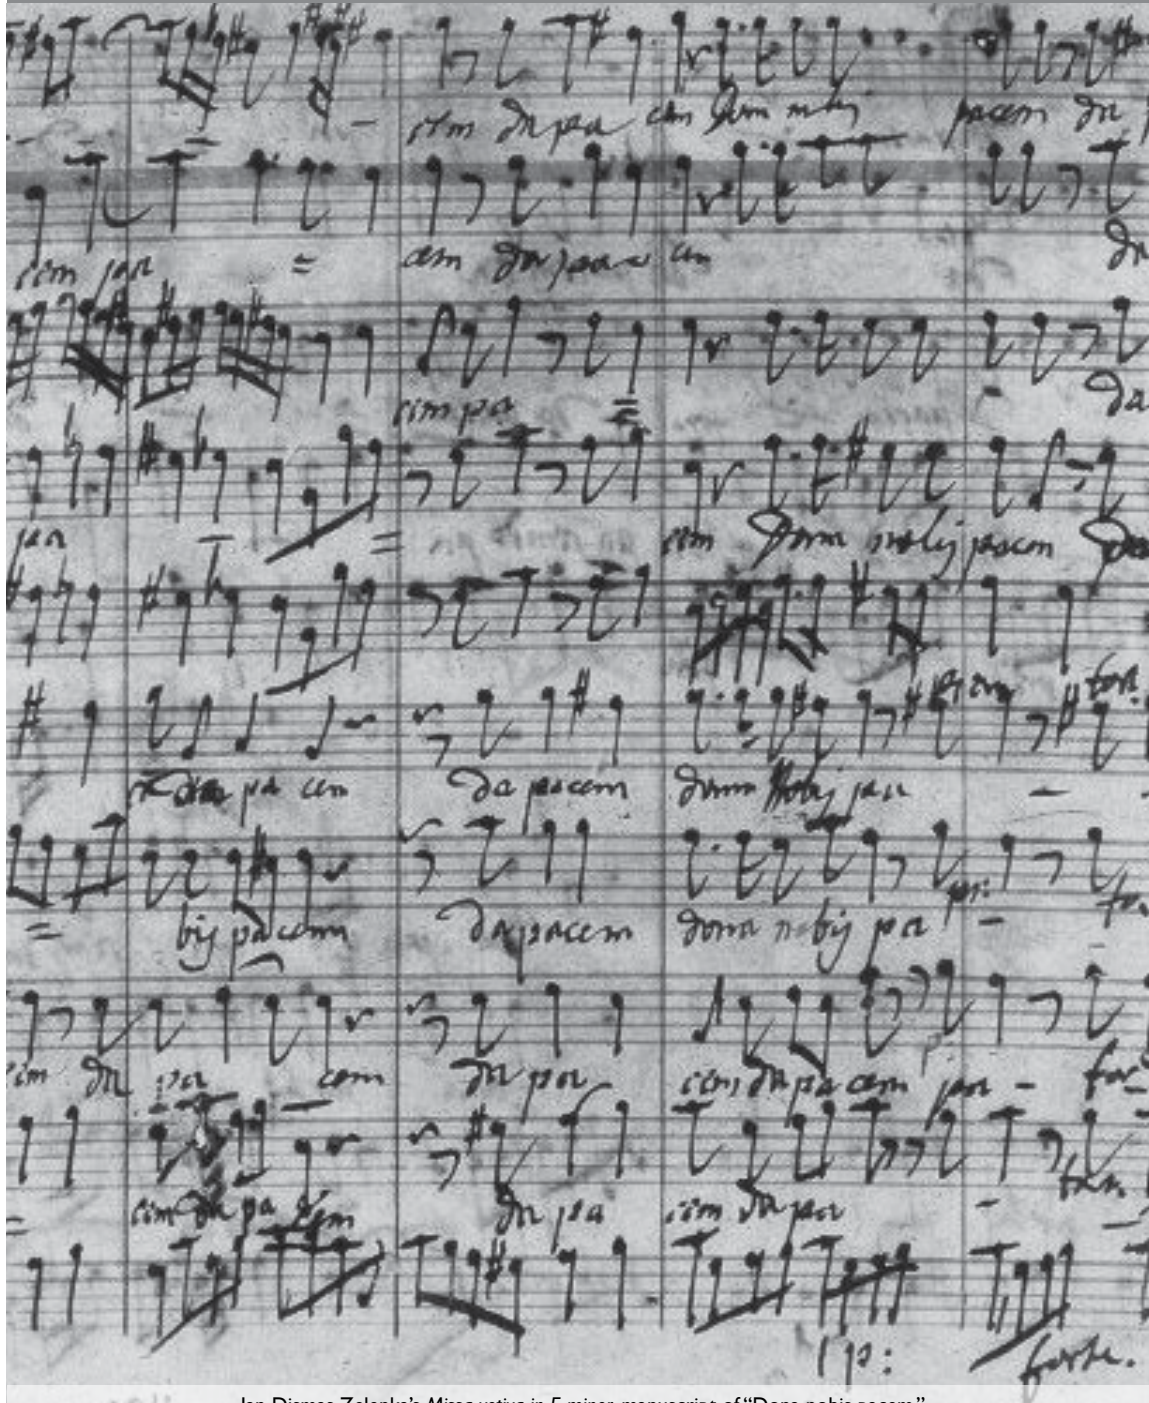 cem da pa cem dona nobis pacem da
cem pa = cem da pa cem da
cem pa = da
pa - = cem Dona nobis pacem Da
for.
pa cem da pacem dona nobis pa -
= bis pacem da pacem dona nobis pa -
cem da pa cem da pa cem da pa cem pa - for
cem da pa cem da pa cem da pa -
p: forte.
Jan Dismas Zelenka's Missa votiva in E minor, manuscript of "Dona nobis pacem"